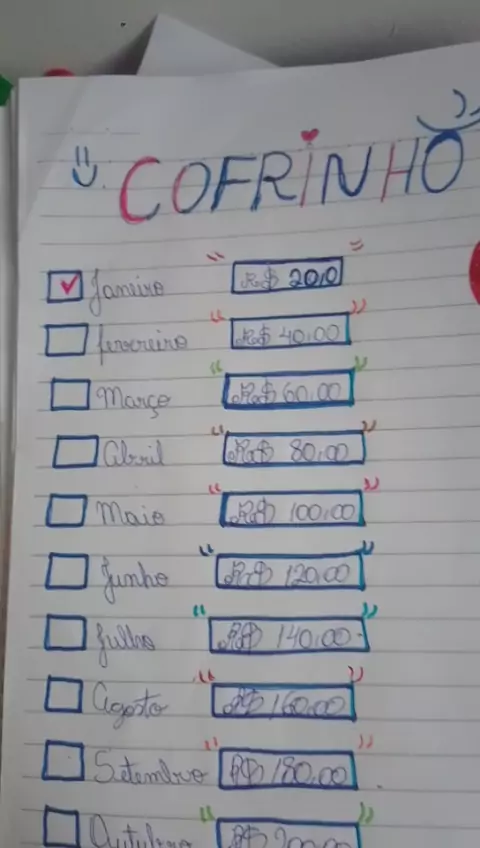 COFRINHO
Janeiro "R$ 20,0"
fevereiro "R$ 40,00"
Março "R$ 60,00"
Abril "R$ 80,00"
Maio "R$ 100,00"
Junho "R$ 120,00"
Julho "R$ 140,00"
Agosto "R$ 160,00"
Setembro "R$ 180,00"
Outubro "R$ 200,00"